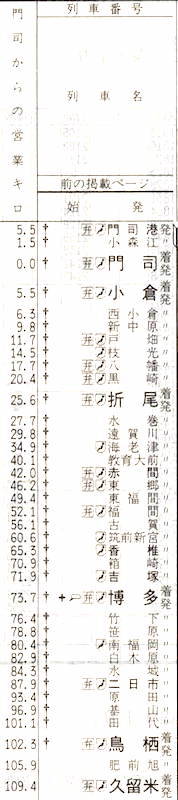 列車番号
列車名
門司からの営業キロ
前の掲載ページ
始発
5.5 † 弁 門司港 発
1.5 † 小森江 〃
0.0 † 弁 門司 着発
5.5 † 弁 小倉 着発
6.3 † 西小倉 〃
9.8 † 新中原 〃
11.7 † 弁 戸畑 〃
14.5 † 枝光 〃
17.7 † 弁 八幡 〃
20.4 † 弁 黒崎 〃
25.6 † 弁 折尾 着発
27.7 水巻 〃
29.8 遠賀川 〃
34.9 † 海老津 〃
40.1 † 教育大前 〃
42.0 † 弁 赤間 〃
46.2 † 弁 東郷 〃
49.4 東福間 〃
52.1 † 弁 福間 〃
56.1 古賀 〃
60.6 † 筑前新宮 〃
65.3 † 香椎 〃
70.9 箱崎 〃
71.9 † 吉塚 〃
73.7 † 弁 博多 着発
76.4 竹下 〃
78.8 笹原 〃
80.4 † 南福岡 〃
82.9 † 白木原 〃
84.3 水城 〃
87.9 † 弁 二日市 〃
93.4 † 原田 〃
96.9 基山 〃
101.1 † 田代 〃
102.3 † 弁 鳥栖 着発
105.9 肥前旭 〃
109.4 † 弁 久留米 着発